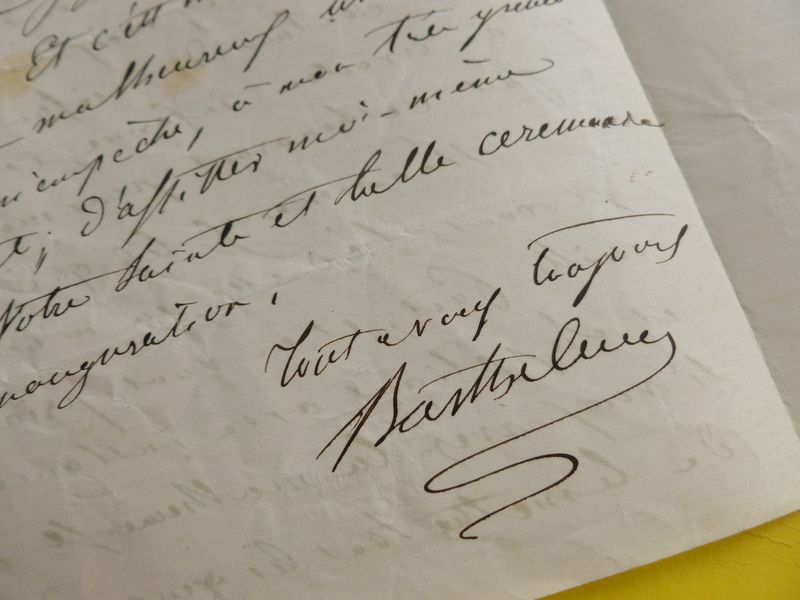 Et c'est
malheureux
m'empêche, à mon très grand
d'assister moi-même
Votre Sainte et belle ceremonie
inauguration.
Tout a vous toujours
Barthelemy